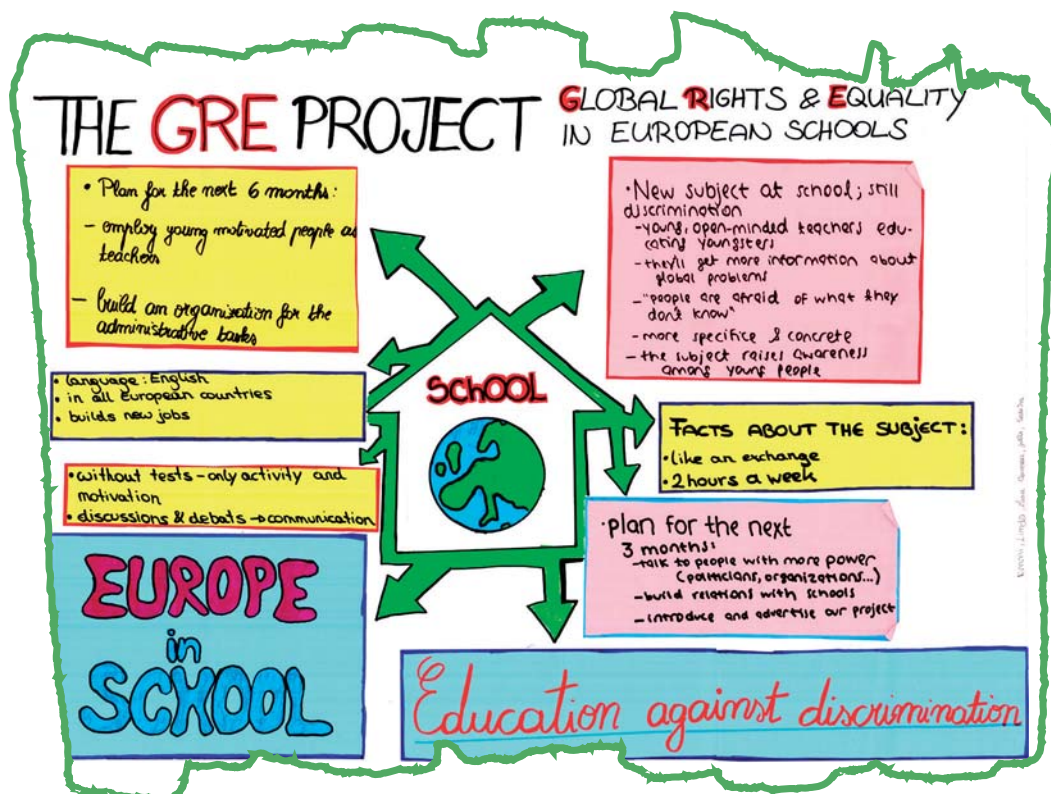 THE GRE PROJECT
GLOBAL RIGHTS & EQUALITY
IN EUROPEAN SCHOOLS
• Plan for the next 6 months:
– employ young motivated people as
teachers
– build an organisation for the
administrative tasks
• language: English
• in all European countries
• builds new jobs
• without tests – only activity and
motivation
• discussions & debats → communication
EUROPE
in
SCHOOL
SCHOOL
• New subject at school; still
discrimination
- young, open-minded teachers edu-
cating youngsters
- they'll get more information about
global problems
- "people are afraid of what they
don't know"
- more specifice & concrete
- the subject raises awareness
among young people
FACTS ABOUT THE SUBJECT:
• like an exchange
• 2 hours a week
• plan for the next
3 months:
- talk to people with more power
(politicians, organizations...)
- build relations with schools
- introduce and advertise our project
Education against discrimination